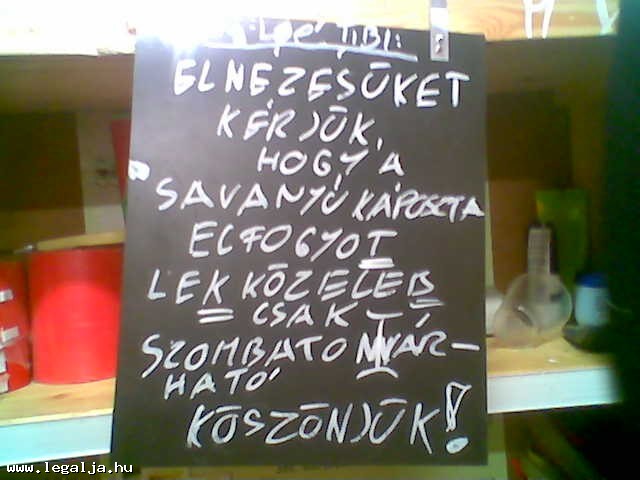 TIBI:
ELNÉZÉSÜKET
KÉRJÜK,
HOGY A
SAVANYÚ KÁPOSZTA
ELFOGYOT
LEK KÖZELEB
CSAK
SZOMBATON VÁR-
HATÓ
KÖSZÖNJÜK!
www.legalja.hu